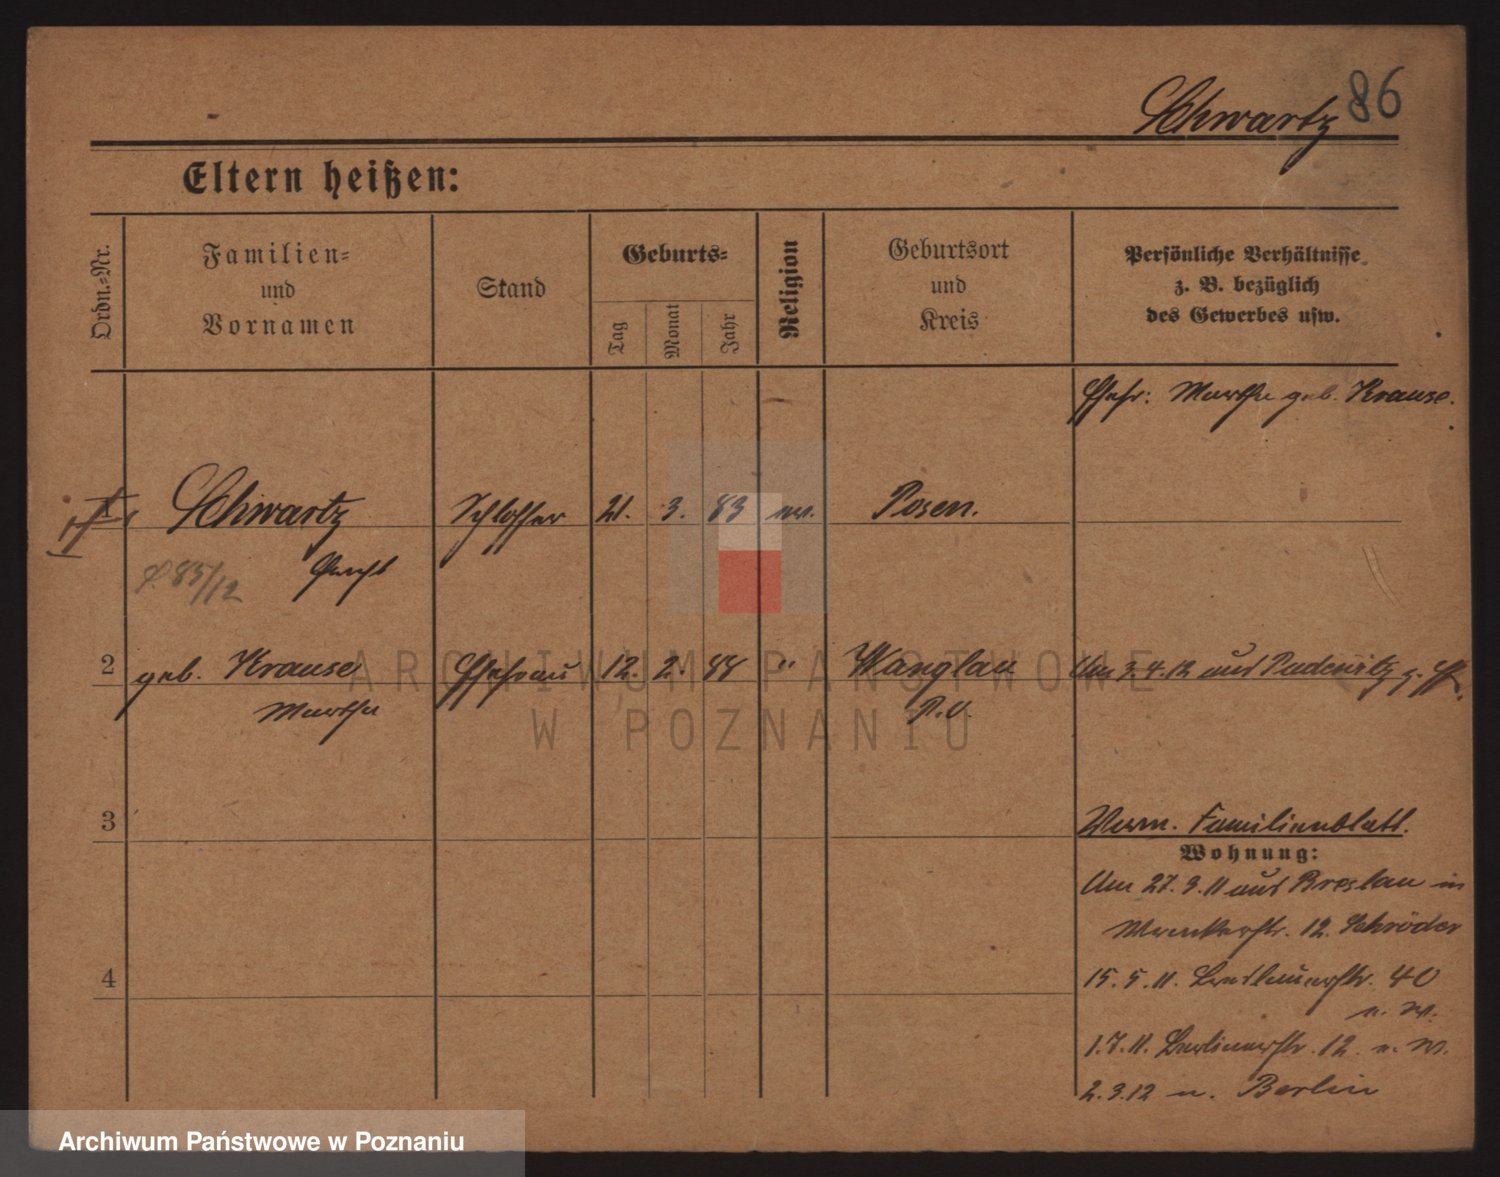 Schwartz 86
Eltern heißen:
Ordn.-Nr.
Familien-
und
Vornamen
Stand
Geburts-
Tag
Monat
Jahr
Religion
Geburtsort
und
Kreis
Persönliche Verhältnisse
z. B. bezüglich
des Gewerbes usw.
Ehefr: Martha geb. Krause.
Schwartz Schlosser 21. 3. 83 Posen.
85/12
2 geb. Krause Ehefrau 12. 2. 88 " Wanglau Am 3.4.12 aus Pudewitz
Martha
3
Familienblatt.
Wohnung:
Am 27.3.11 aus Breslau in
12. Schröder
4
15.5.11. Breslauerstr. 40
n. W.
1.7.11. Berlinerstr. 12 n. W.
2.3.12 n. Berlin
ARCHIWUM PAŃSTWOWE
W POZNANIU
Archiwum Państwowe w Poznaniu